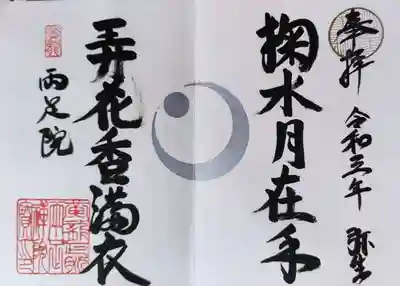 奉拝
令和三年
弥生
掬水月在手
弄花香満衣
両足院